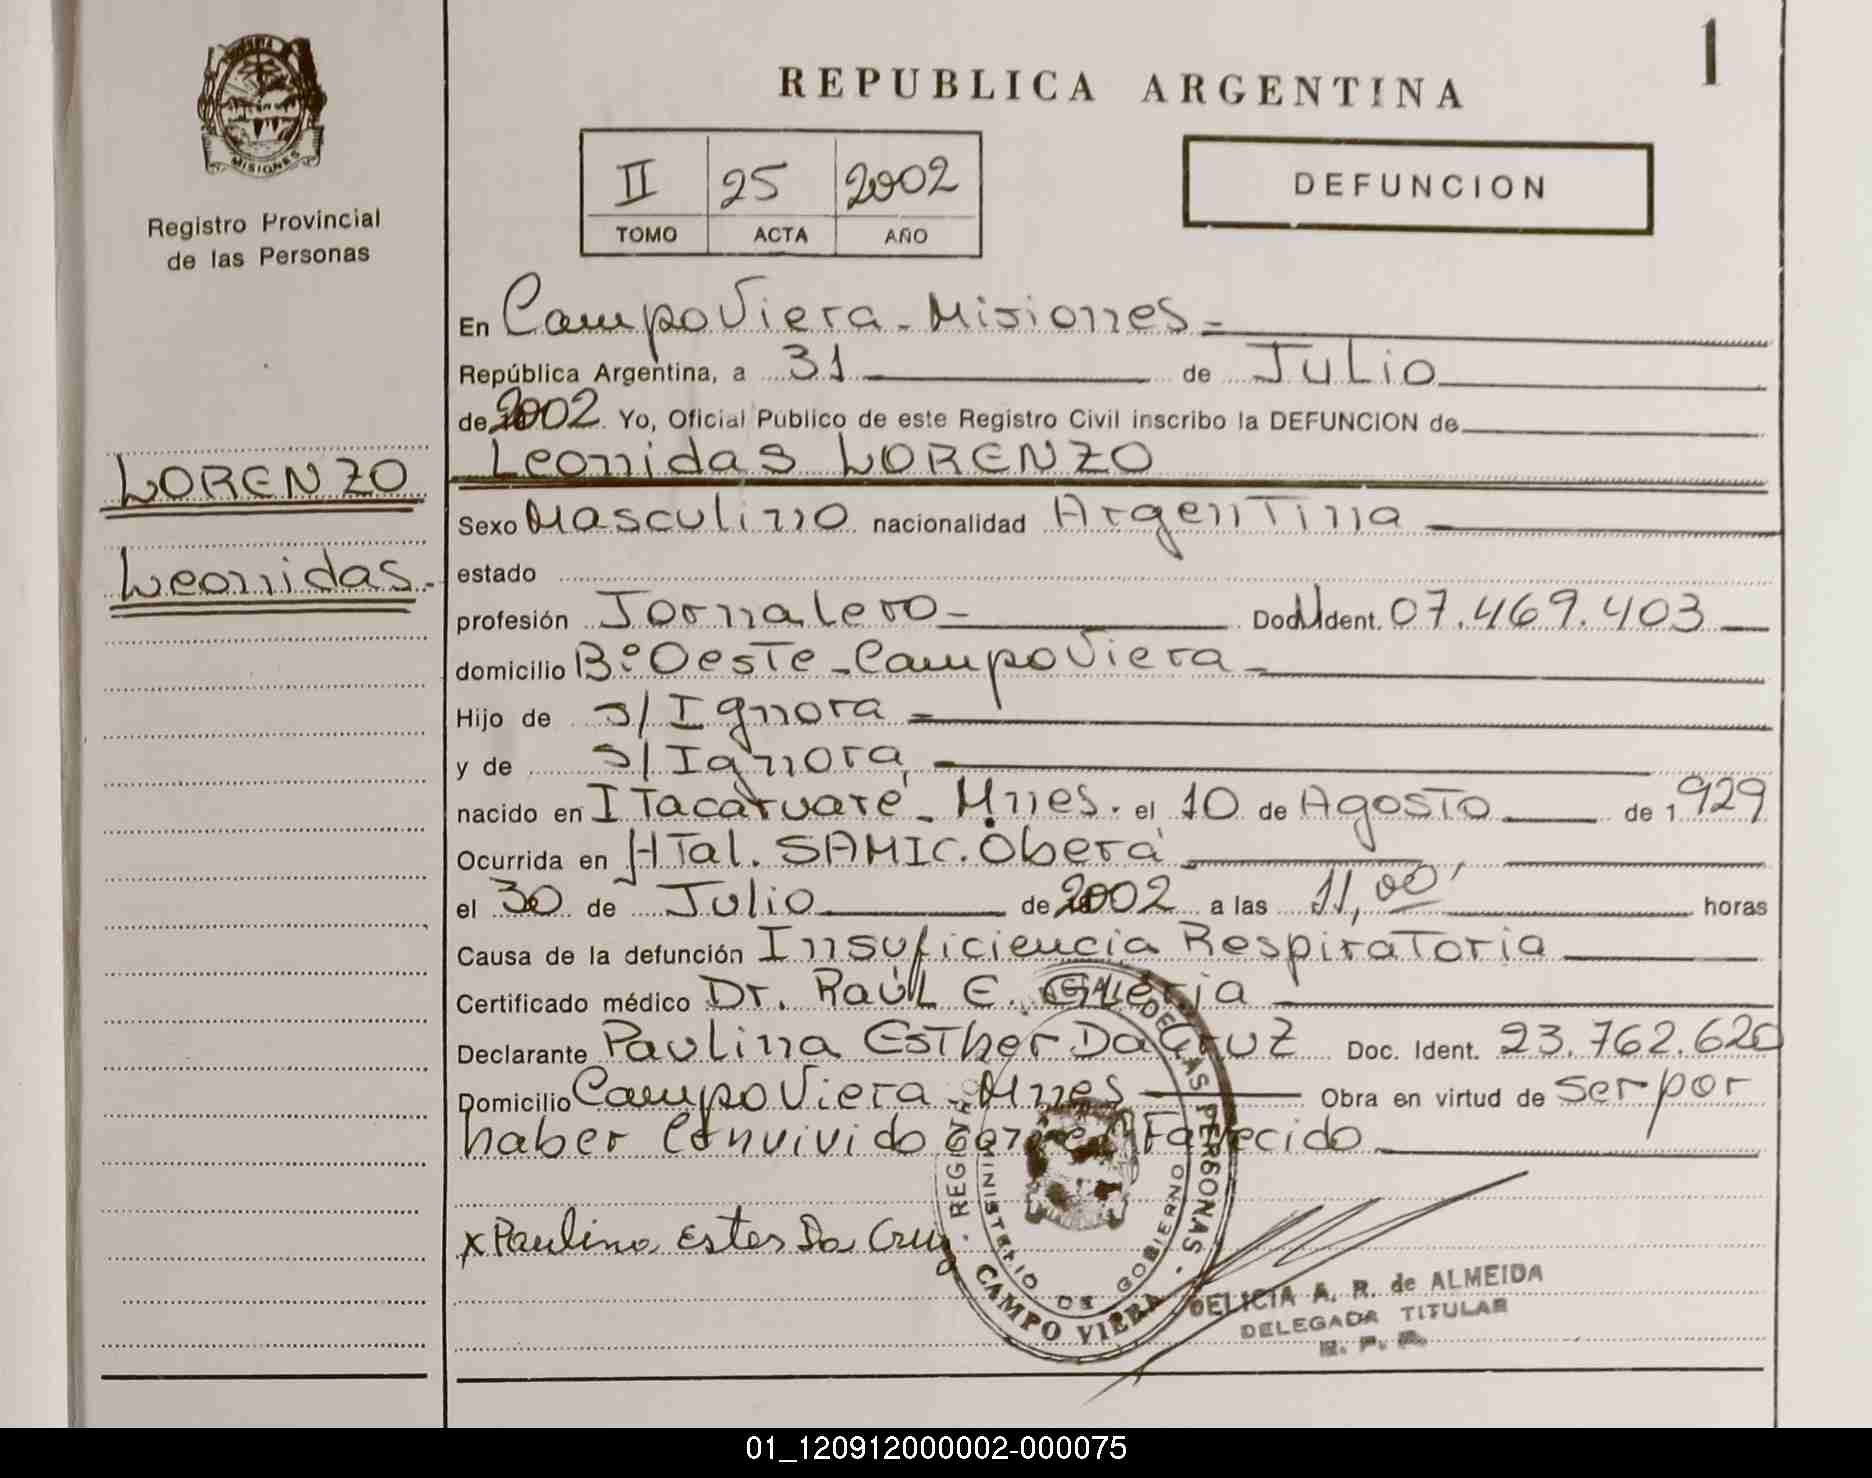 1
REPUBLICA ARGENTINA
PROVINCIA
MISIONES
Registro Provincial
de las Personas
II 25 2002
TOMO ACTA AÑO
DEFUNCION
En Campo Viera - Misiones -
República Argentina, a 31 de Julio
de 2002. Yo, Oficial Público de este Registro Civil inscribo la DEFUNCION de
Leonidas LORENZO
LORENZO
Leonidas.-
Sexo Masculino nacionalidad Argentina
estado
profesión Jornalero - Doc. Ident. 07.469.403
domicilio Bº Oeste - Campo Viera -
Hijo de s/ Ignora -
y de s/ Ignora, -
nacido en Itacaruaré - Mnes. el 10 de Agosto de 1929
Ocurrida en HTal. SAMIC. Oberá
el 30 de Julio de 2002 a las 11,00 horas
Causa de la defunción Insuficiencia Respiratoria
Certificado médico Dr. Raúl E.
Declarante Paulina Esther Da Cruz Doc. Ident. 23.762.620
Domicilio Campo Viera - Mnes Obra en virtud de ser por
haber Convivido con el Fallecido
x Paulina Ester Da Cruz
REGISTRO DE LAS PERSONAS
MINISTERIO DE GOBIERNO
CAMPO VIERA
DELICIA A. R. de ALMEIDA
DELEGADA TITULAR
R. P. P.
01_120912000002-000075